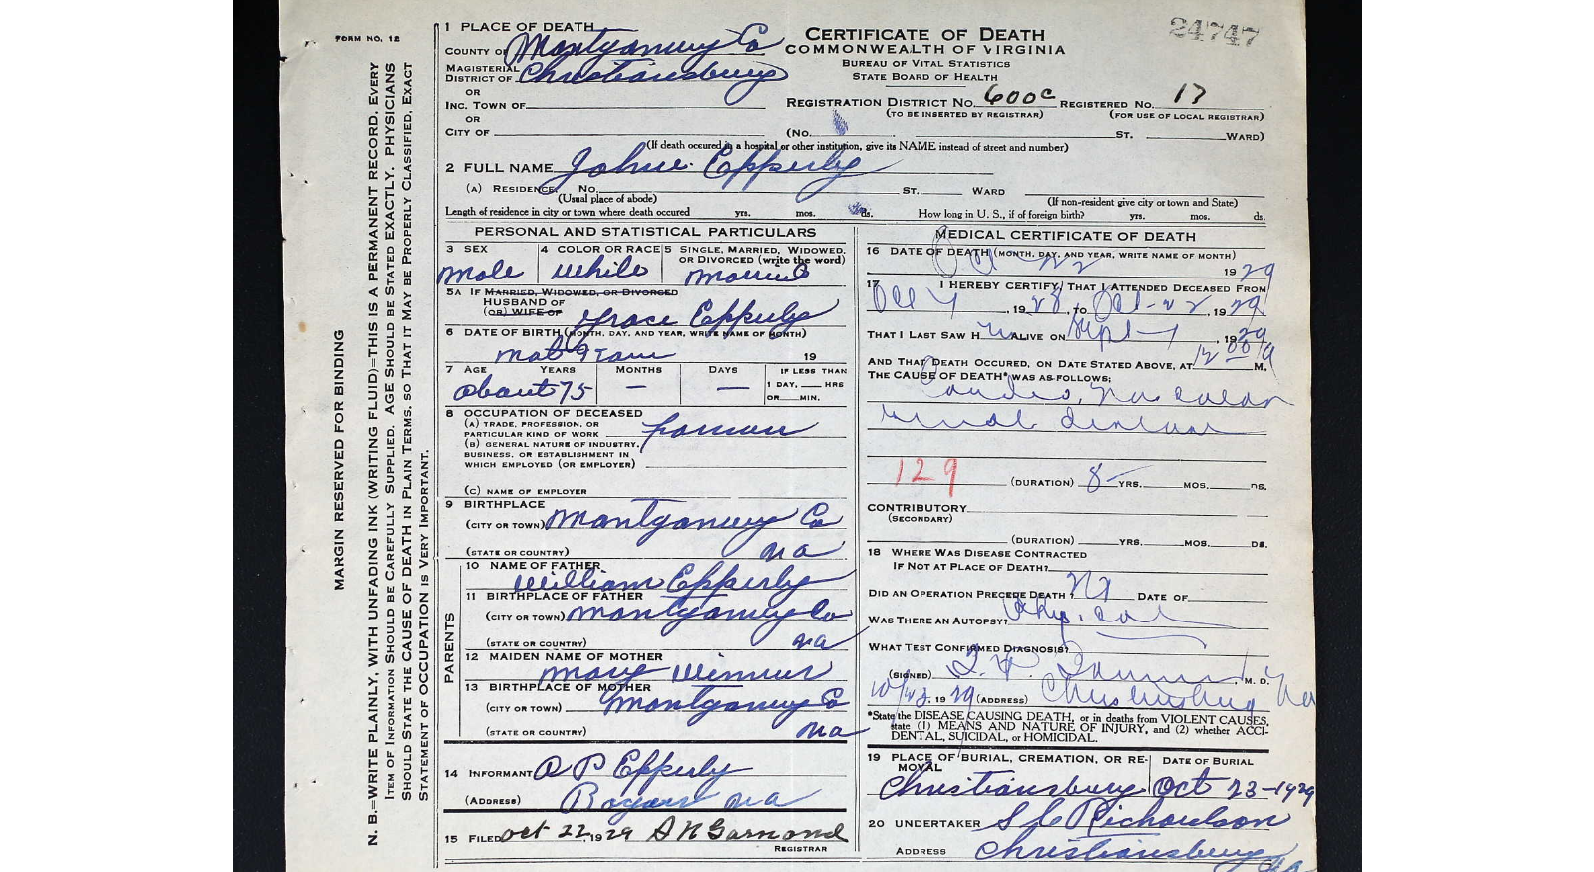 FORM NO. 12
MARGIN RESERVED FOR BINDING
N. B.=WRITE PLAINLY, WITH UNFADING INK (WRITING FLUID)=THIS IS A PERMANENT RECORD. EVERY
ITEM OF INFORMATION SHOULD BE CAREFULLY SUPPLIED. AGE SHOULD BE STATED EXACTLY. PHYSICIANS
SHOULD STATE THE CAUSE OF DEATH IN PLAIN TERMS, SO THAT IT MAY BE PROPERLY CLASSIFIED. EXACT
STATEMENT OF OCCUPATION IS VERY IMPORTANT.
24747
CERTIFICATE OF DEATH
COMMONWEALTH OF VIRGINIA
BUREAU OF VITAL STATISTICS
STATE BOARD OF HEALTH
1 PLACE OF DEATH
COUNTY OF Montgomery Co
MAGISTERIAL
DISTRICT OF Christiansburg
OR
INC. TOWN OF
REGISTRATION DISTRICT NO. 600c REGISTERED NO. 17
(TO BE INSERTED BY REGISTRAR) (FOR USE OF LOCAL REGISTRAR)
OR
CITY OF (NO. ST. WARD)
(If death occured in a hospital or other institution, give its NAME instead of street and number)
2 FULL NAME Johnie Epperly
(A) RESIDENCE. NO. ST. WARD
(Usual place of abode) (If non-resident give city or town and State)
Length of residence in city or town where death occured yrs. mos. ds. How long in U. S., if of foreign birth? yrs. mos. ds.
PERSONAL AND STATISTICAL PARTICULARS
3 SEX 4 COLOR OR RACE 5 SINGLE, MARRIED, WIDOWED,
OR DIVORCED (write the word)
male white married
5A IF MARRIED, WIDOWED, OR DIVORCED
HUSBAND OF
(OR) WIFE OF Grace Epperly
6 DATE OF BIRTH (MONTH, DAY, AND YEAR, WRITE NAME OF MONTH)
19
7 AGE YEARS MONTHS DAYS IF LESS THAN
1 DAY, HRS
OR MIN.
about 75 — —
8 OCCUPATION OF DECEASED
(A) TRADE, PROFESSION, OR
PARTICULAR KIND OF WORK farmer
(B) GENERAL NATURE OF INDUSTRY,
BUSINESS, OR ESTABLISHMENT IN
WHICH EMPLOYED (OR EMPLOYER)
(C) NAME OF EMPLOYER
9 BIRTHPLACE
(CITY OR TOWN) Montgomery Co
(STATE OR COUNTRY) Va
PARENTS
10 NAME OF FATHER
William Epperly
11 BIRTHPLACE OF FATHER
(CITY OR TOWN) Montgomery Co
(STATE OR COUNTRY) Va
12 MAIDEN NAME OF MOTHER
Mary
13 BIRTHPLACE OF MOTHER
(CITY OR TOWN) Montgomery Co
(STATE OR COUNTRY) Va
14 INFORMANT Epperly
(ADDRESS) Va
15 FILED Oct 22, 1929
REGISTRAR
MEDICAL CERTIFICATE OF DEATH
16 DATE OF DEATH (MONTH, DAY, AND YEAR, WRITE NAME OF MONTH)
Oct 22 1929
17 I HEREBY CERTIFY, THAT I ATTENDED DECEASED FROM
1928, to Oct-22, 1929
THAT I LAST SAW H ALIVE ON Sept-, 1929
AND THAT DEATH OCCURED, ON DATE STATED ABOVE, AT M.
THE CAUSE OF DEATH* WAS AS FOLLOWS;
129 (DURATION) 8- YRS. MOS. DS.
CONTRIBUTORY
(SECONDARY)
(DURATION) YRS. MOS. DS.
18 WHERE WAS DISEASE CONTRACTED
IF NOT AT PLACE OF DEATH?
DID AN OPERATION PRECEDE DEATH? DATE OF
WAS THERE AN AUTOPSY?
WHAT TEST CONFIRMED DIAGNOSIS?
(SIGNED) M. D.
19 29 (ADDRESS) Christiansburg Va
*State the DISEASE CAUSING DEATH, or in deaths from VIOLENT CAUSES,
state (1) MEANS AND NATURE OF INJURY, and (2) whether ACCI-
DENTAL, SUICIDAL, or HOMICIDAL.
19 PLACE OF BURIAL, CREMATION, OR RE- DATE OF BURIAL
MOVAL
Christiansburg Oct 23-1929
20 UNDERTAKER Richardson
ADDRESS Christiansburg Va